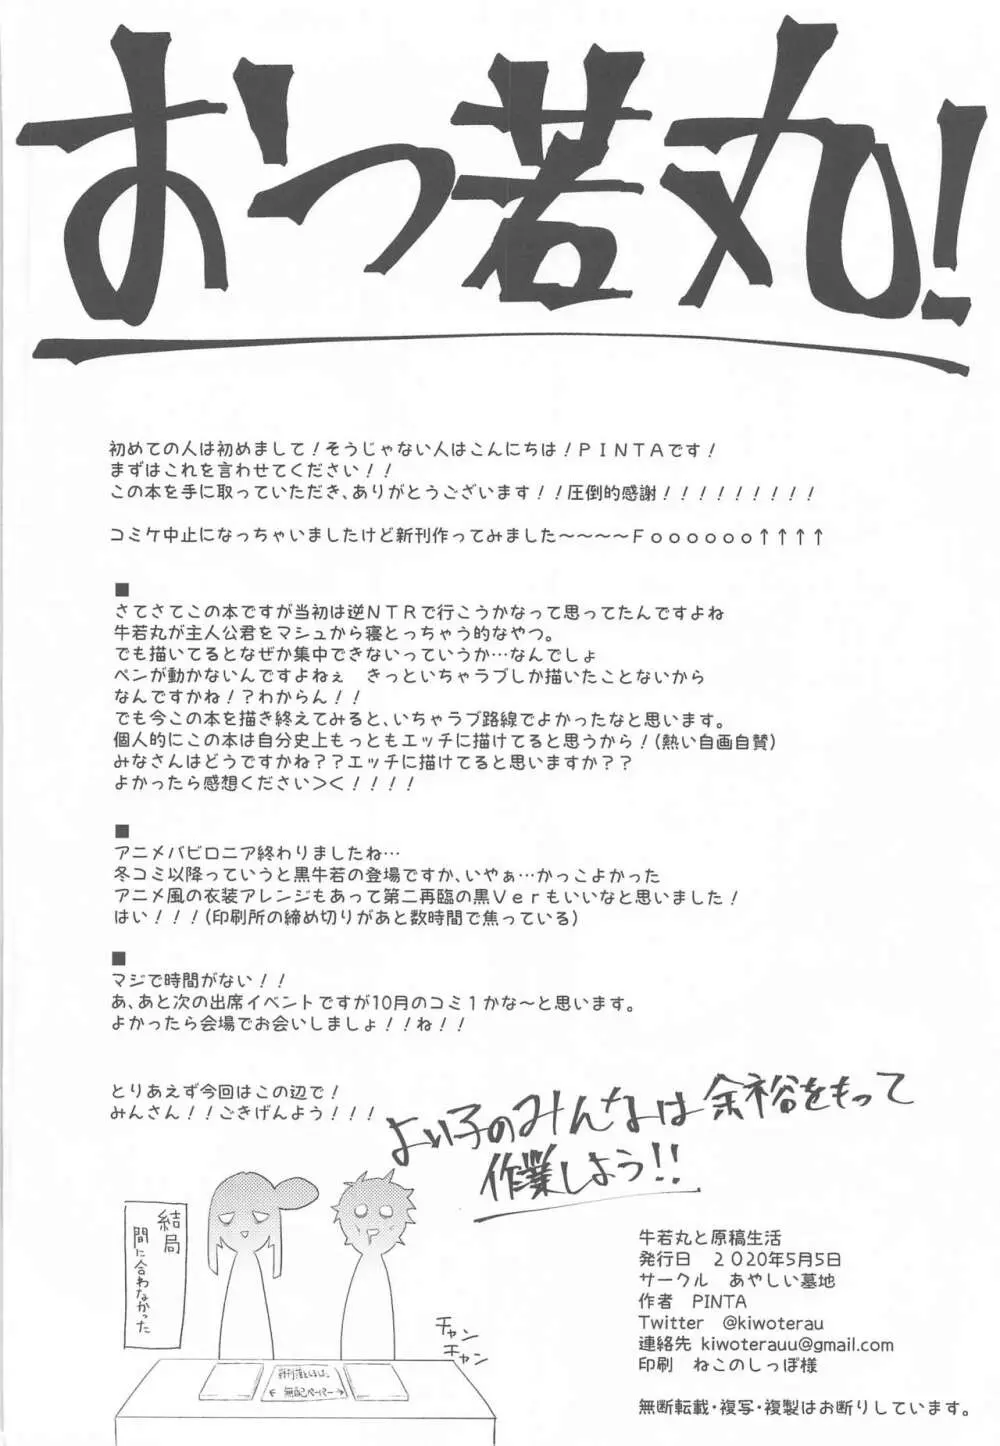 おつ若丸!
初めての人は初めまして!そうじゃない人はこんにちは!PINTAです!
まずはこれを言わせてください!!
この本を手に取っていただき、ありがとうございます!!圧倒的感謝!!!!!!!!!
コミケ中止になっちゃいましたけど新刊作ってみました～～～～Foooooo↑↑↑↑
■
さてさてこの本ですが当初は逆NTRで行こうかなって思ってたんですよね
牛若丸が主人公君をマシュから寝とっちゃう的なやつ。
でも描いてるとなぜか集中できないっていうか…なんでしょ
ペンが動かないんですよねぇ　きっといちゃラブしか描いたことないから
なんですかね!?わからん!!
でも今この本を描き終えてみると、いちゃラブ路線でよかったなと思います。
個人的にこの本は自分史上もっともエッチに描けてると思うから!(熱い自画自賛)
みなさんはどうですかね??エッチに描けてると思いますか??
よかったら感想ください＞＜!!!!
■
アニメバビロニア終わりましたね…
冬コミ以降っていうと黒牛若の登場ですか、いやぁ…かっこよかった
アニメ風の衣装アレンジもあって第二再臨の黒Verもいいなと思いました!
はい!!!(印刷所の締め切りがあと数時間で焦っている)
■
マジで時間がない!!
あ、あと次の出席イベントですが10月のコミ1かな～と思います。
よかったら会場でお会いしましょ!!ね!!
とりあえず今回はこの辺で!
みんさん!!ごきげんよう!!!
よい子のみんなは余裕をもって
作業しよう!!
結局
間に合わなかった
チャン
チャン
新刊落としました
← 無配ペーパー →
牛若丸と原稿生活
発行日　2020年5月5日
サークル　あやしい墓地
作者　PINTA
Twitter　@kiwoterau
連絡先 kiwoterauu@gmail.com
印刷　ねこのしっぽ様
無断転載・複写・複製はお断りしています。